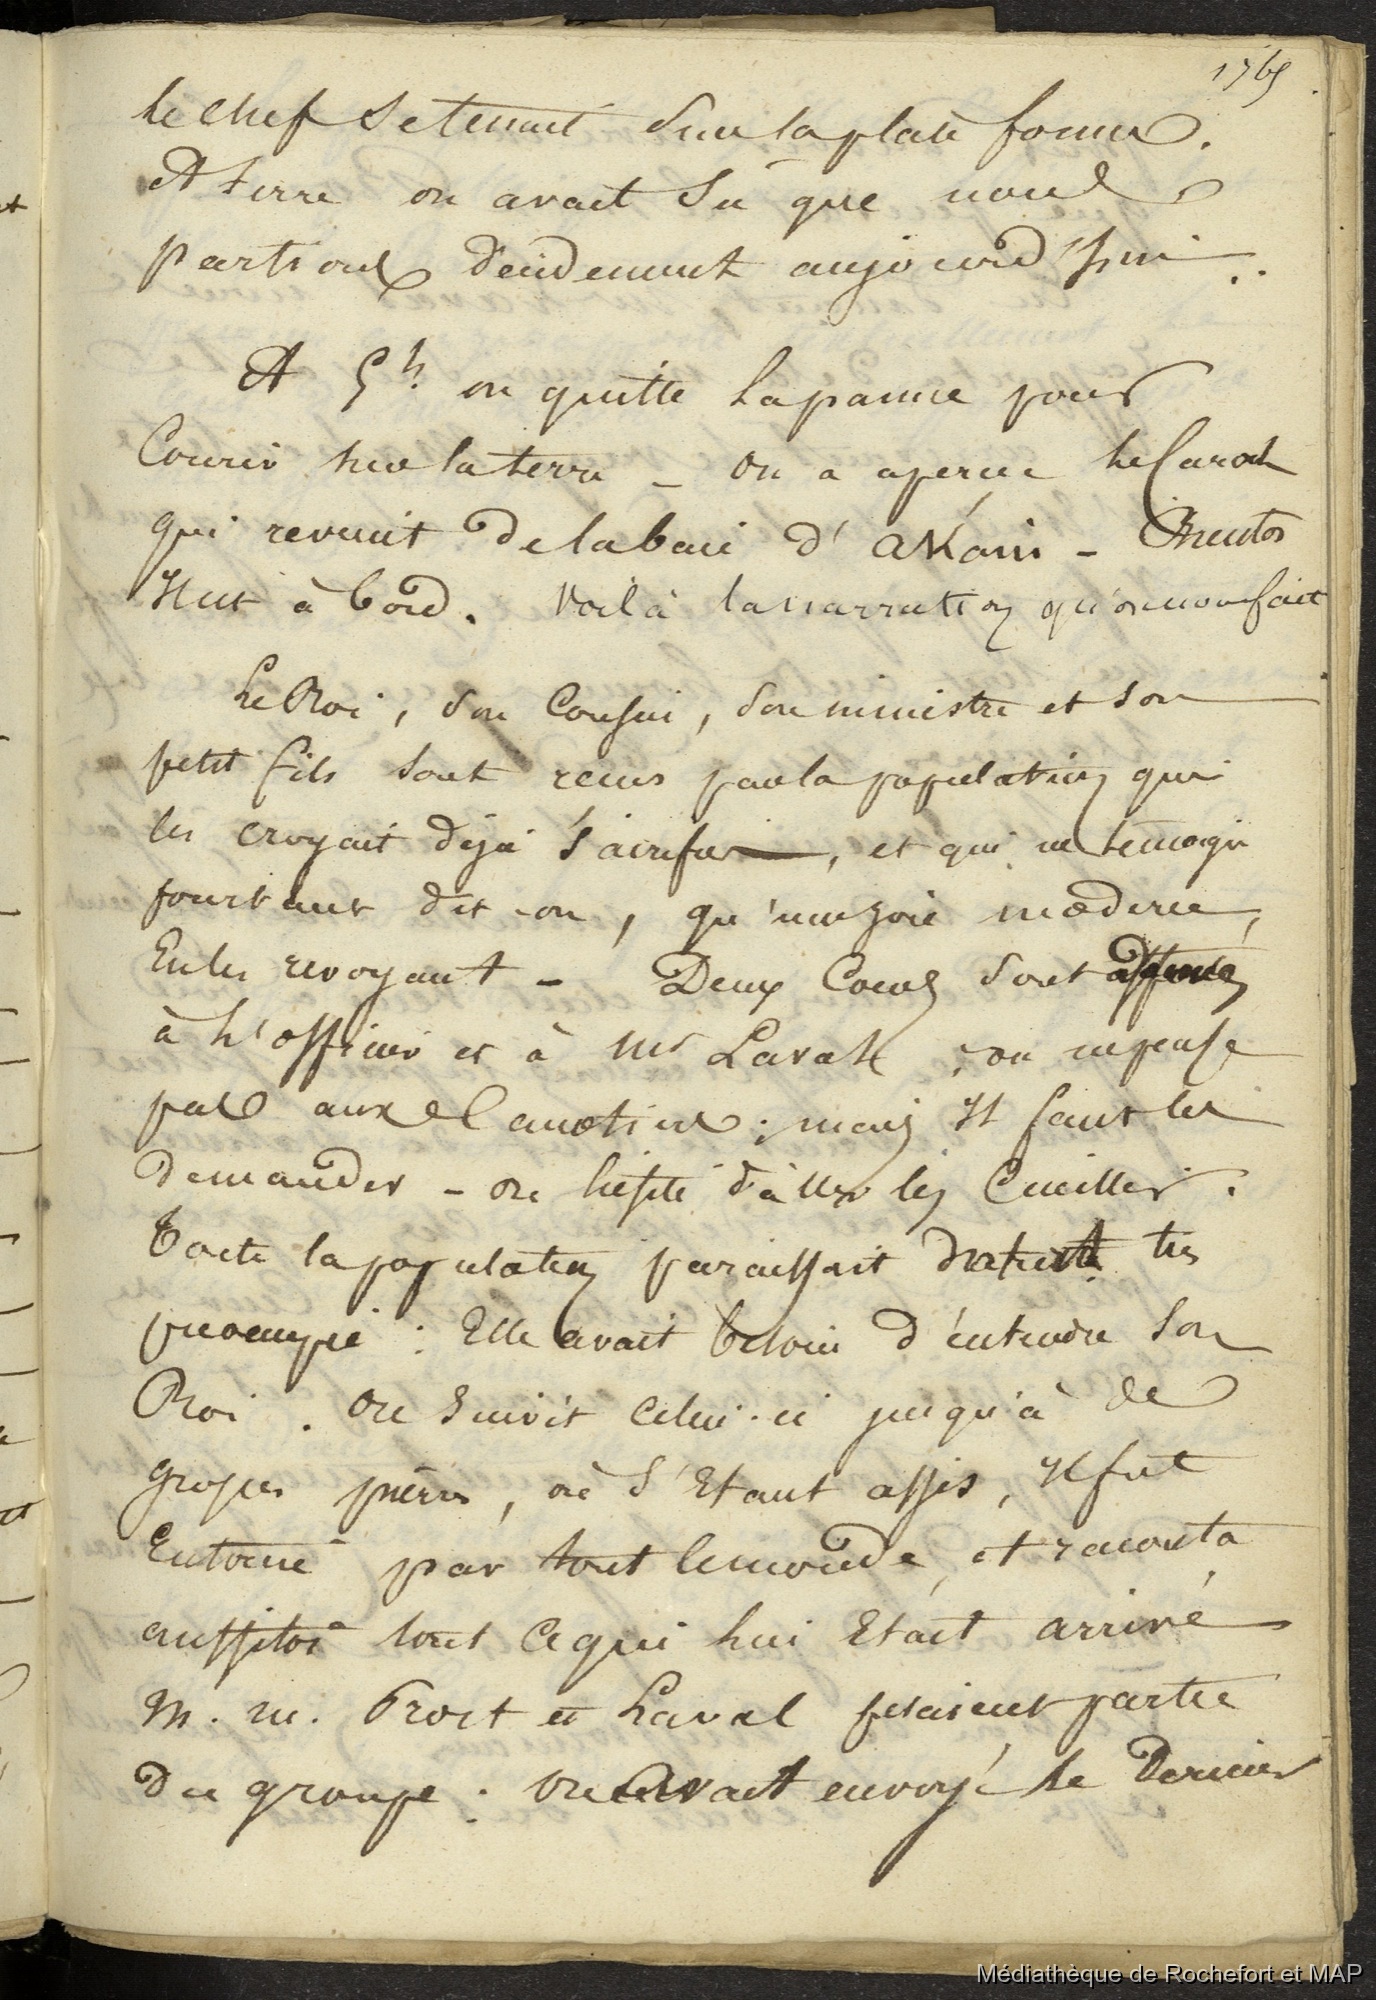 1765
Le chef se tenait sur la plate forme.
A terre on avait su que nous
partions décidement aujourd'hui..
A 5h. on quitte la panne pour
Courir sur la terre _ on a aperçu le Canot
qui revenait de la baie d'aKani _ Bientôt
Il est à bord. Voilà la narration qu'on nous fait
Le Roi, son Cousin, son ministre et son
petit fils sont reçus par la population qui
les croyait déjà , et qui ne témoigne
pourtant dit-on, qu'une joie modérée,
En les revoyant _ Deux Cocos sont
à L'officier et à Mr Laval ; on ne pense
pas aux Canotiers ; mais Il faut les
demander - on hésite d'aller les Cueillir.
Toute la population paraissait très
préoccupée : Elle avait besoin d'entendre son
Roi. On suivit celui-ci jusqu'à de
grosses pierres, où s'Etant assis, Il fut
Entouré par tout le monde, et raconta
aussitôt tout ce qui lui Etait arrivé
M. M. Prost et Laval faisaient partie
Du groupe : on avait envoyé le Dernier
Médiathèque de Rochefort et MAP